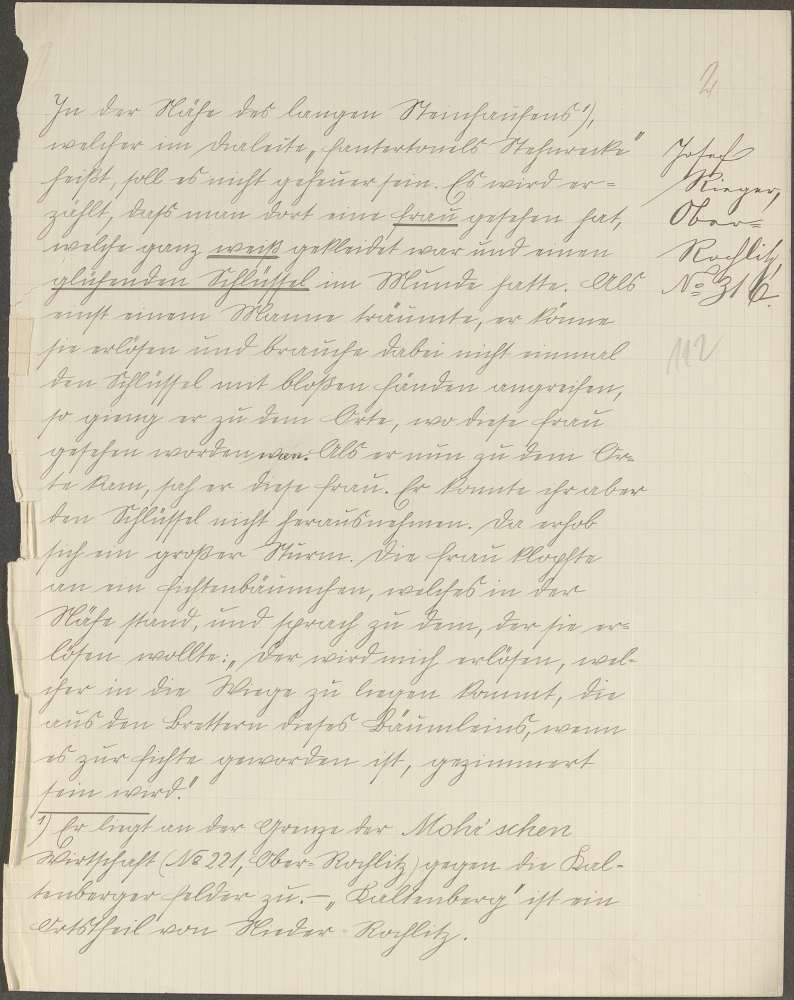 2
In der Nähe des langen Steinhaufens ¹),
welcher im Dialeite „Hantertonels Stehnrecke"
heißt, soll es nicht geheuer sein. Es wird er=
zählt, daß man dort eine Frau gesehen hat,
welche ganz weiß gekleidet war und einen
glühenden Schlüssel im Munde hatte. Als
einst einem Manne träumte, er könne
sie erlösen und brauche dabei nicht einmal
den Schlüssel mit bloßen Händen angreifen,
so gieng er zu dem Orte, wo diese Frau
gesehen worden war. Als er nun zu dem Or=
te kam, sah er diese Frau. Er konnte ihr aber
den Schlüssel nicht herausnehmen. Da erhob
sich ein großer Sturm. Die Frau klopfte
an ein Fichtenbäumchen, welches in der
Nähe stand, und sprach zu dem, der sie er=
lösen wollte: „Der wird mich erlösen, wel-
cher in die Wiege zu liegen kommt, die
aus den Brettern dieses Bäumleins, wenn
es zur Fichte geworden ist, gezimmert
sein wird."
¹) Er liegt an der Grenze der Mohr'schen
Wirtschaft (No 221, Ober-Rochlitz) gegen die Kal-
tenberger Felder zu. – „Kaltenberg" ist ein
Ortstheil von Nieder-Rochlitz.
Josef
Rieger,
Ober=
Rochlitz,
No 316.
112